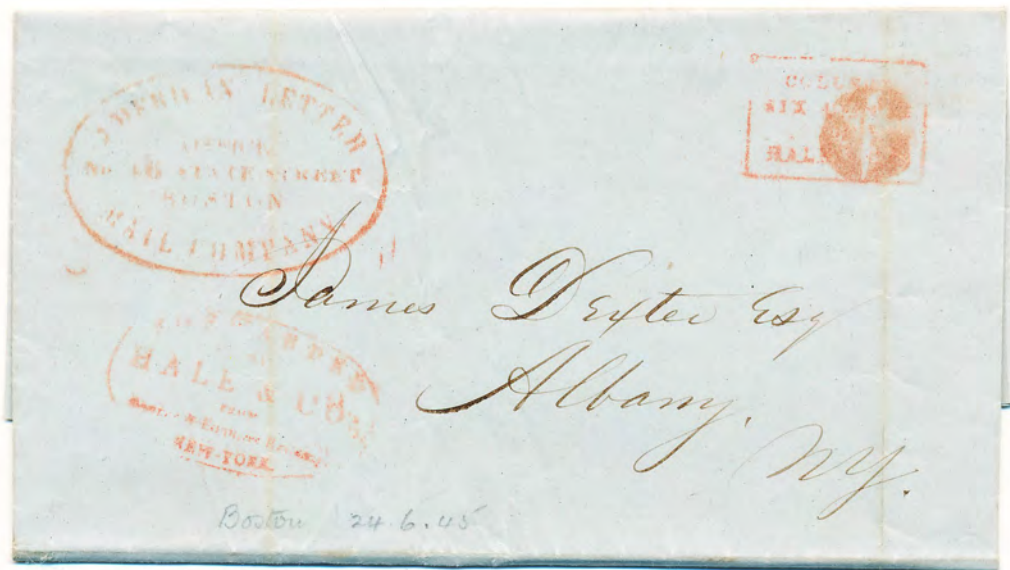 AMERICAN LETTER
OFFICE
No 18 STATE STREET
BOSTON
MAIL COMPANY
COLLECT
SIX
HALE
James Dexter Esq
Albany.
NY.
FORWARDED
BY
HALE & CO.
FROM
NEW-YORK.
Boston 24.6.45